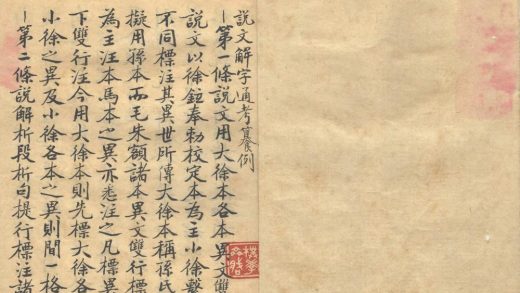 説文解字通考纂例
一第一條説文用大徐本各本異文雙
説文以徐鉉奉勅校定本為主小徐繫
不同標注其異世所傳大徐本稱孫氏
擬用孫本而毛朱額諸本異文雙行標
為主注本馬本之異亦悉注之凡標異
下雙行注今用大徐本則先標大徐各
小徐之異及小徐各本之異則間一格
一第二條説解析段析句提行標注諸